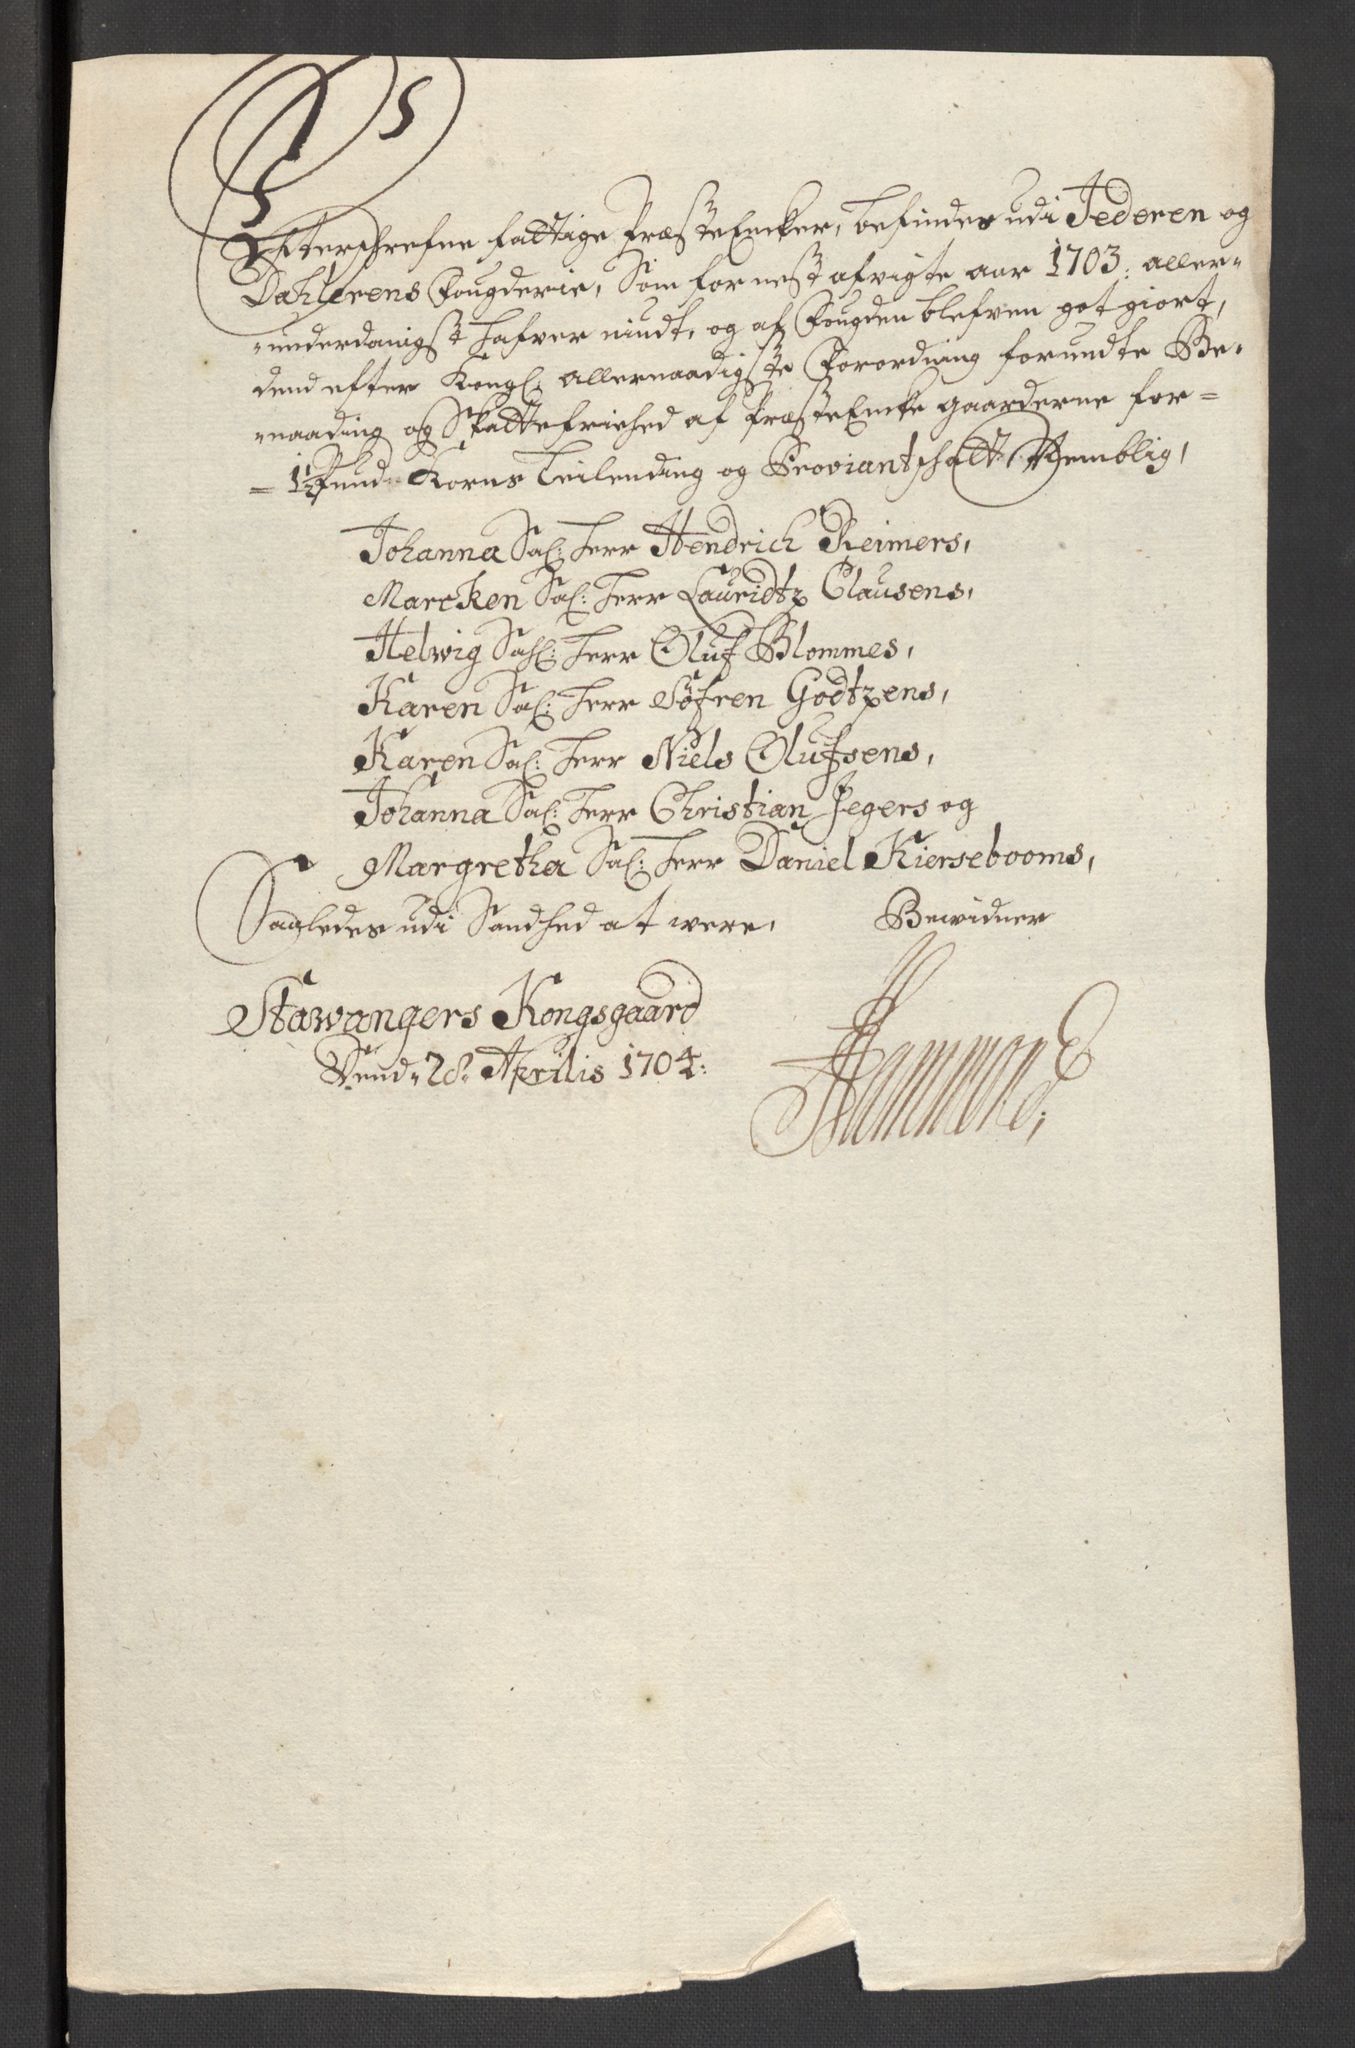 Efterschrefne fattige PræsteEncker, befindes udi Jederen og
Dahlerens Fougderie, Som for nest afvigte aar 1703: aller-
underdanigst hafver niudt, og af Fougden blefven got giort,
dend efter Kongl: allernaadigste Forordning forundte Be-
naading og Skattefriehed af PræsteEncke gaarderne for-
1½ Pund Korns Leilending og Proviantschatt, Nemblig,
Johanna Sal: Herr Hendrich Reimers,
Marcken Sal: Herr Lauridtz Clausens,
Helwig Sahl: Herr Oluf Blommes,
Karen Sal: Herr Söfren Godtzens,
Karen Sal: Herr Niels Olufsens,
Johanna Sal: Herr Christian Jegers og
Margretha Sal: Herr Daniel Kiersebooms,
Saaledes udi Sandhed at were, Bewidner
Stawangers Kongsgaard
Dend 28 Aprilis 1704:
Hammond;